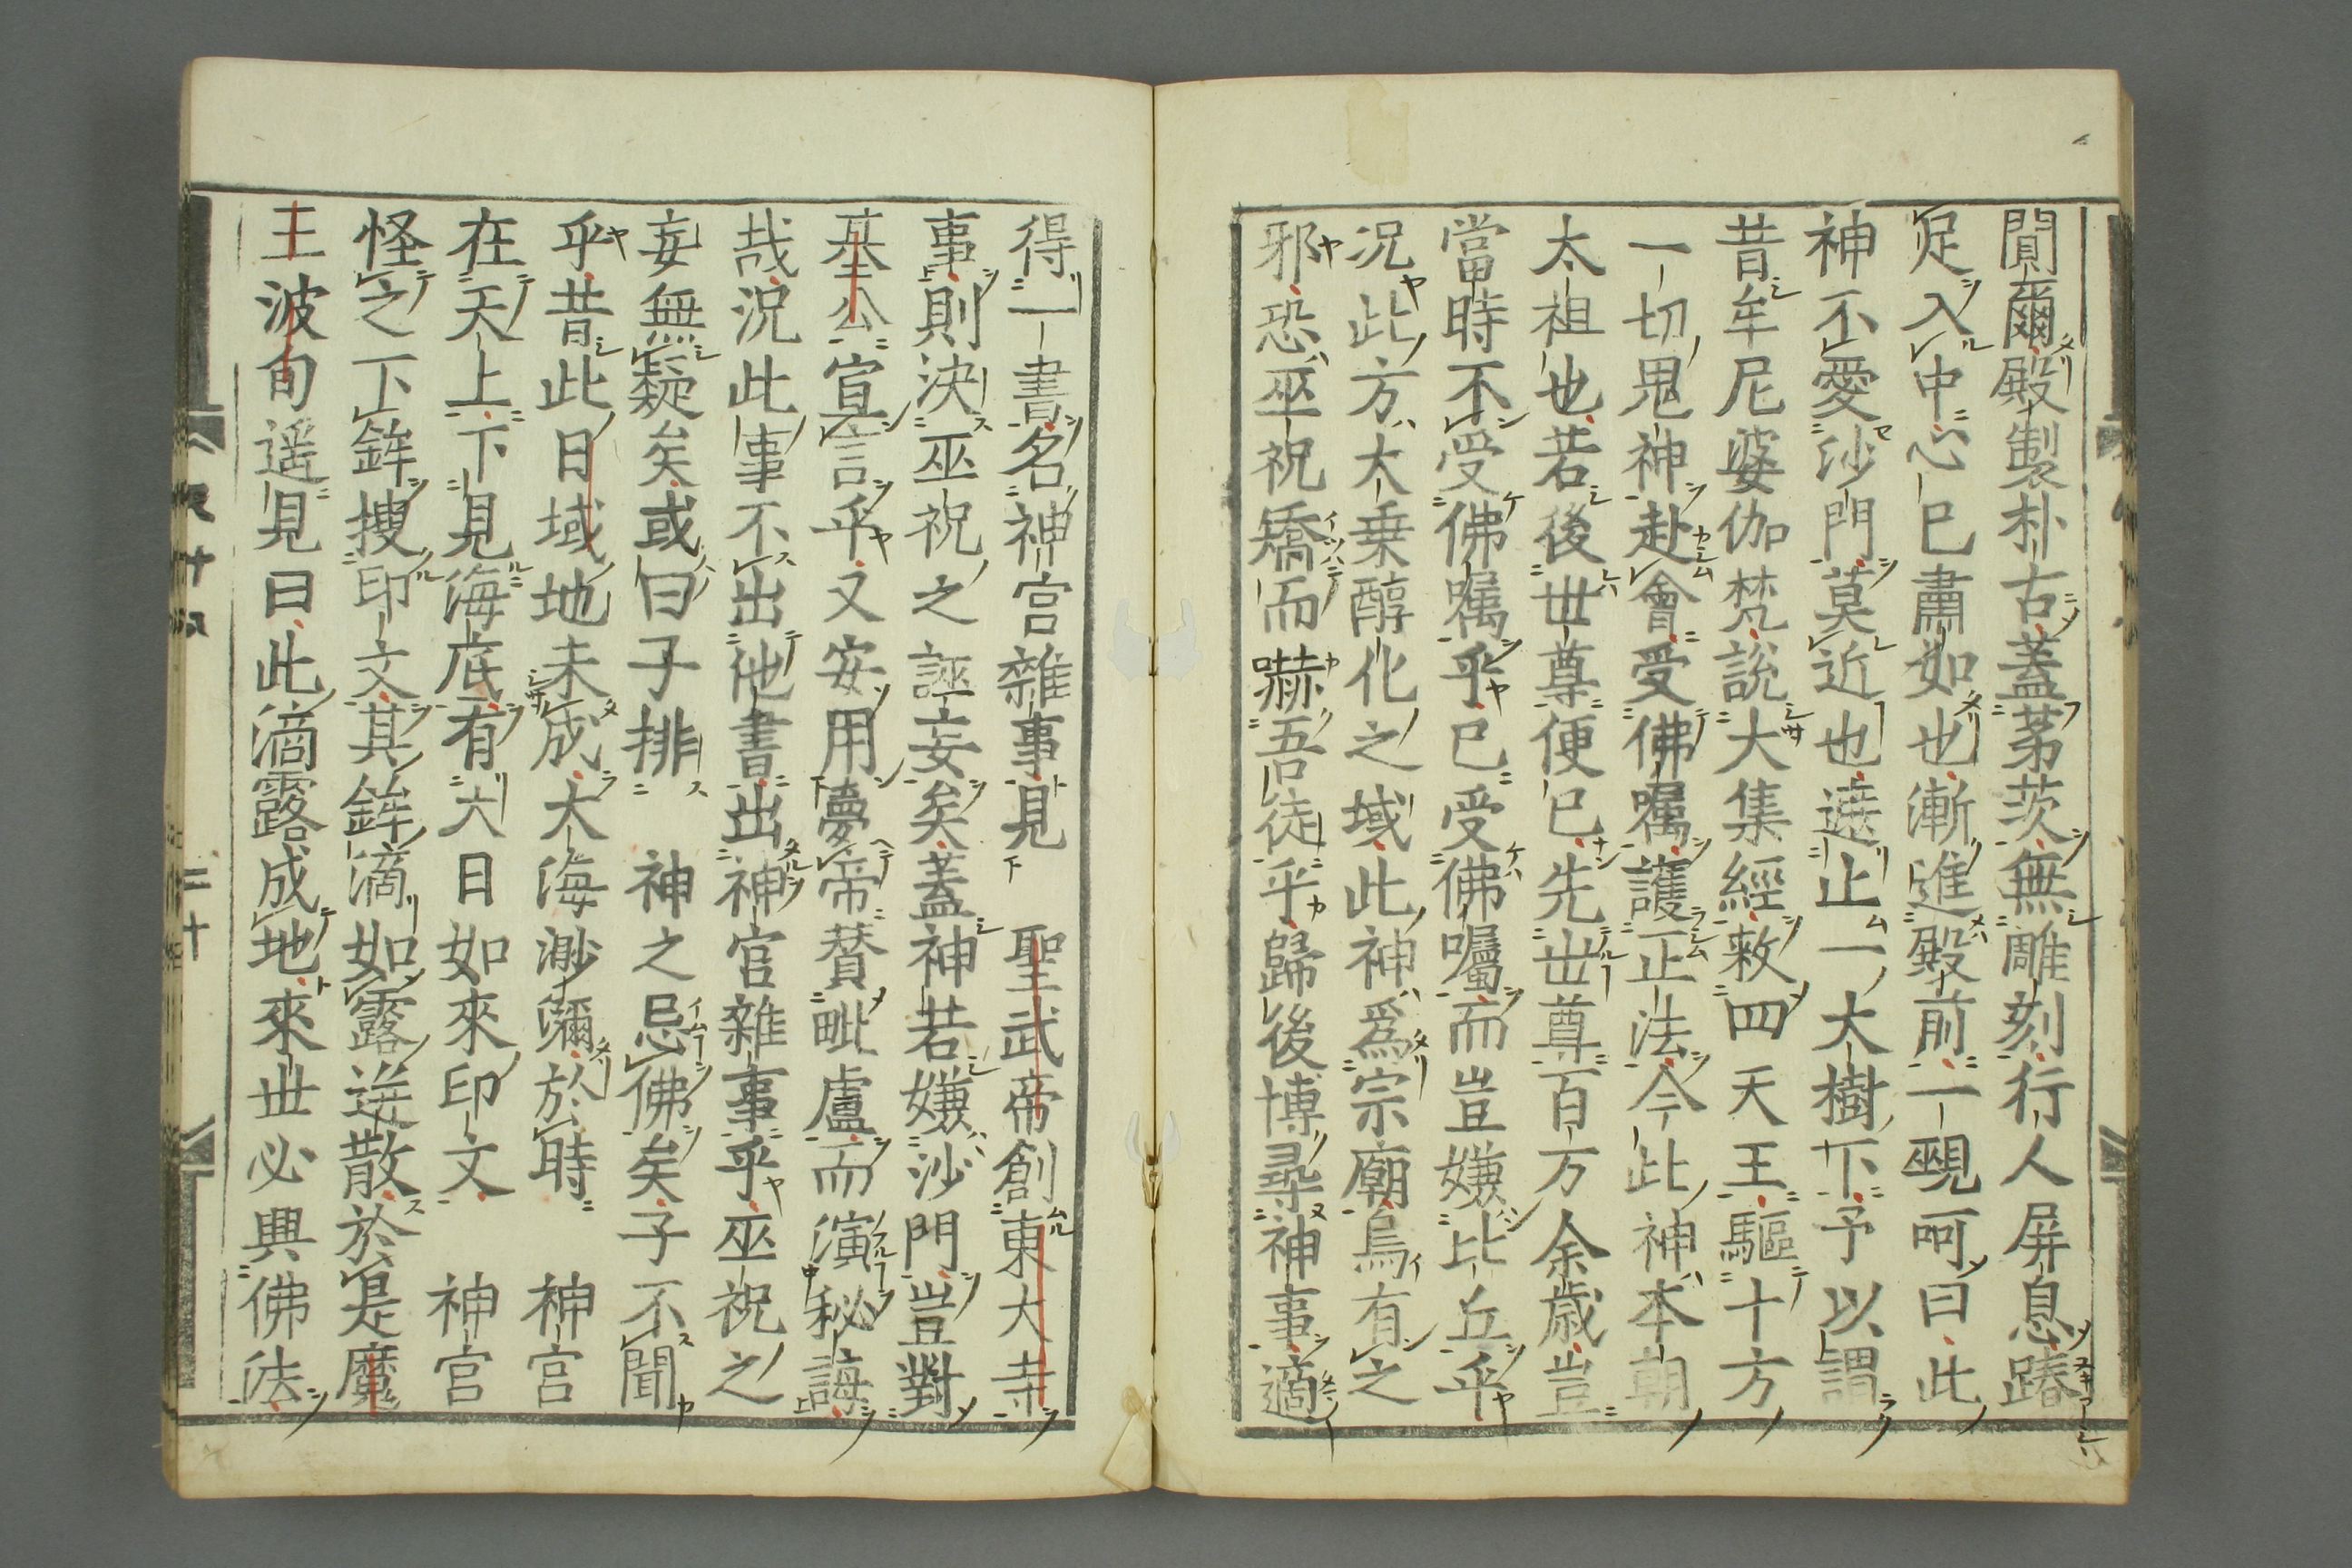 閴爾殿製朴古蓋茅茨無雕刻行人屏息蹐
足入中心已肅如也漸進殿前一覡呵曰此
神不愛沙門莫近也遠止一大樹下予以謂
昔牟尼婆伽梵說大集經敕四天王驅十方
一切鬼神赴會受佛囑護正法今此神本朝
太祖也若後世尊便已先世尊百万余歲豈
當時不受佛囑乎已受佛囑而豈嫌比丘乎
況此方大乗醇化之域此神爲宗廟烏有之
邪恐巫祝矯而嚇吾徒乎歸後博尋神事適
得一書名神宫雜事見 聖武帝創東大寺
事則決巫祝之誣妄矣蓋神若嫌沙門豈對
基公宣言乎又安用夢帝賛毗盧而演秘誨
哉況此事不出他書出神官雜事乎巫祝之
妄無疑矣或曰子排 神之忌佛矣子不聞
乎昔此日域地未成大海渺瀰於時 神宮
在天上下見海底有大日如來印文 神宮
怪之下鉾搜印文其鉾滴如露迸散於是魔
王波旬遥見曰此滴露成地來世必興佛法
二十